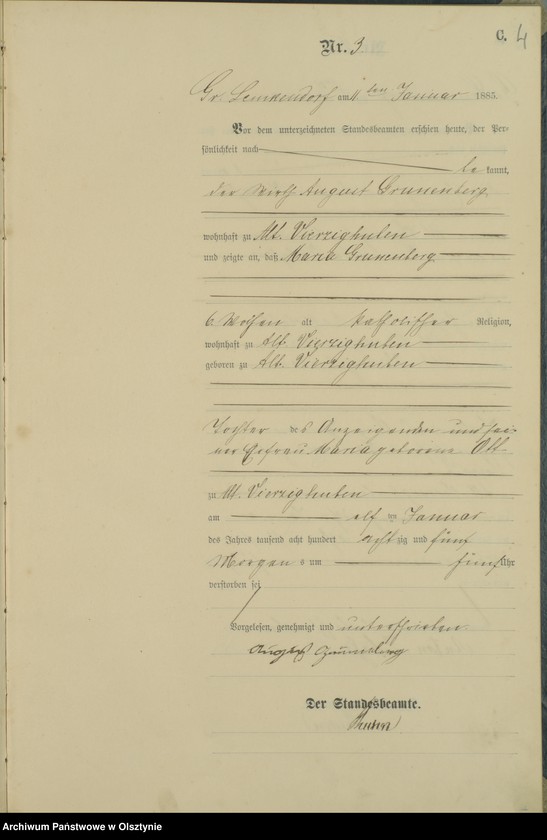 C. 4
Nr. 3
Gr. Lemkendorf am 11 ten Januar 1885.
Vor dem unterzeichneten Standesbeamten erschien heute, der Per-
sönlichkeit nach
bekannt,
der Wirth August Grunenberg
wohnhaft zu Alt. Vierzighuben
und zeigte an, daß Maria Grunenberg
6 Wochen alt katholischer Religion,
wohnhaft zu Alt. Vierzighuben
geboren zu Alt. Vierzighuben
Tochter des Anzeigenden und sei-
ner Ehefrau Maria geborene Ott
zu Alt. Vierzighuben
am elf ten Januar
des Jahres tausend acht hundert achtzig und fünf
Morgens um fünf Uhr
verstorben sei
Vorgelesen, genehmigt und unterschrieben
August Grunenberg
Der Standesbeamte.
Archiwum Państwowe w Olsztynie